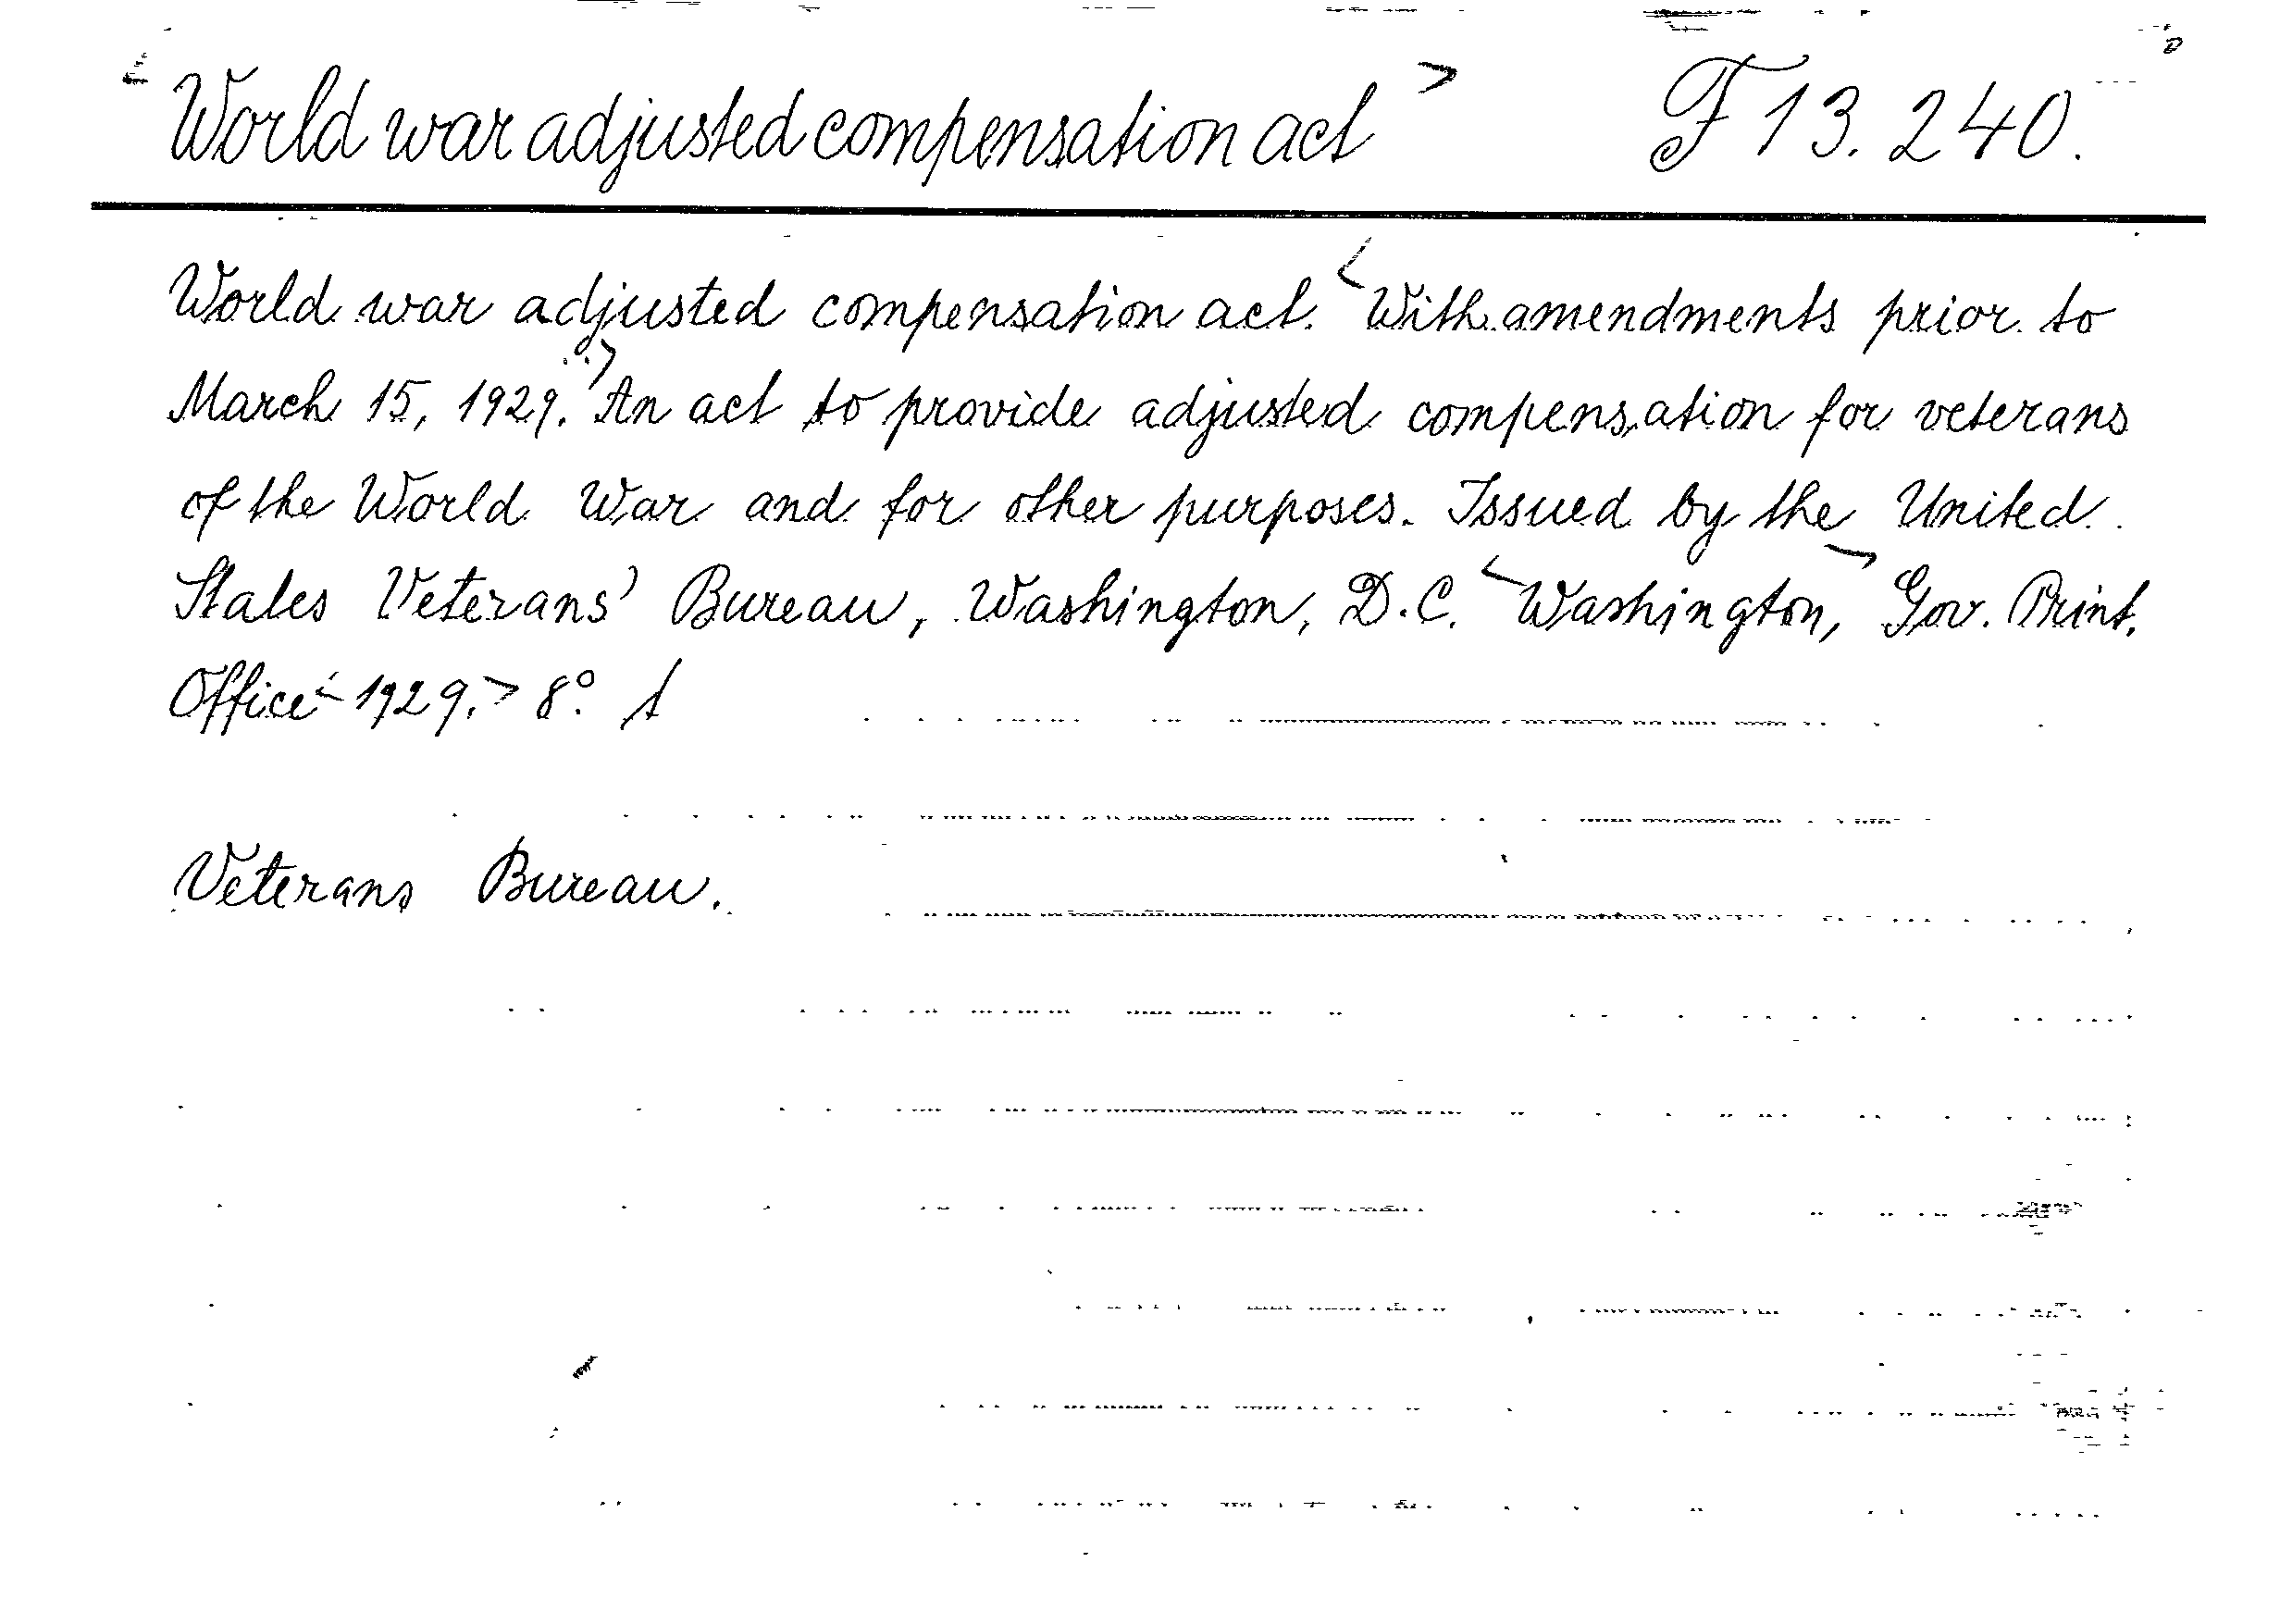 <World war adjusted compensation act> F 13. 240.
World war adjusted compensation act. <With amendments prior to
March 15, 1929.> An act to provide adjusted compensation for veterans
of the World War and for other purposes. Issued by the United
States Veterans' Bureau, Washington, D.C. <Washington,> Gov. Print.
Office <1929.> 8°. 1
Veterans Bureau.